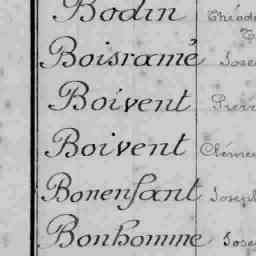 Bodin Théod
Boisramé Jose
Boivent Pierr
Boivent Cléme
Bonenfant Joseph
Bonhomme Jose